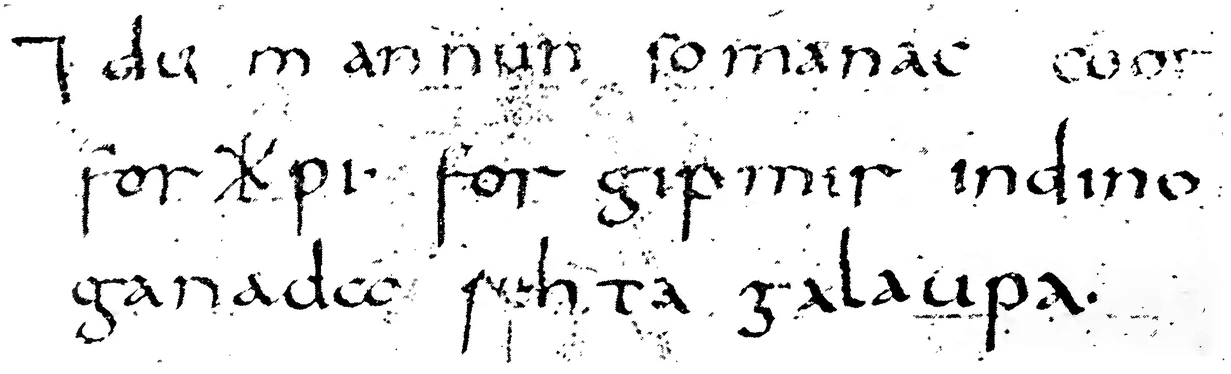 ⁊ du mannun so manac coot
forᚼpi· for gip mir indino
ganada rehta galaupa·